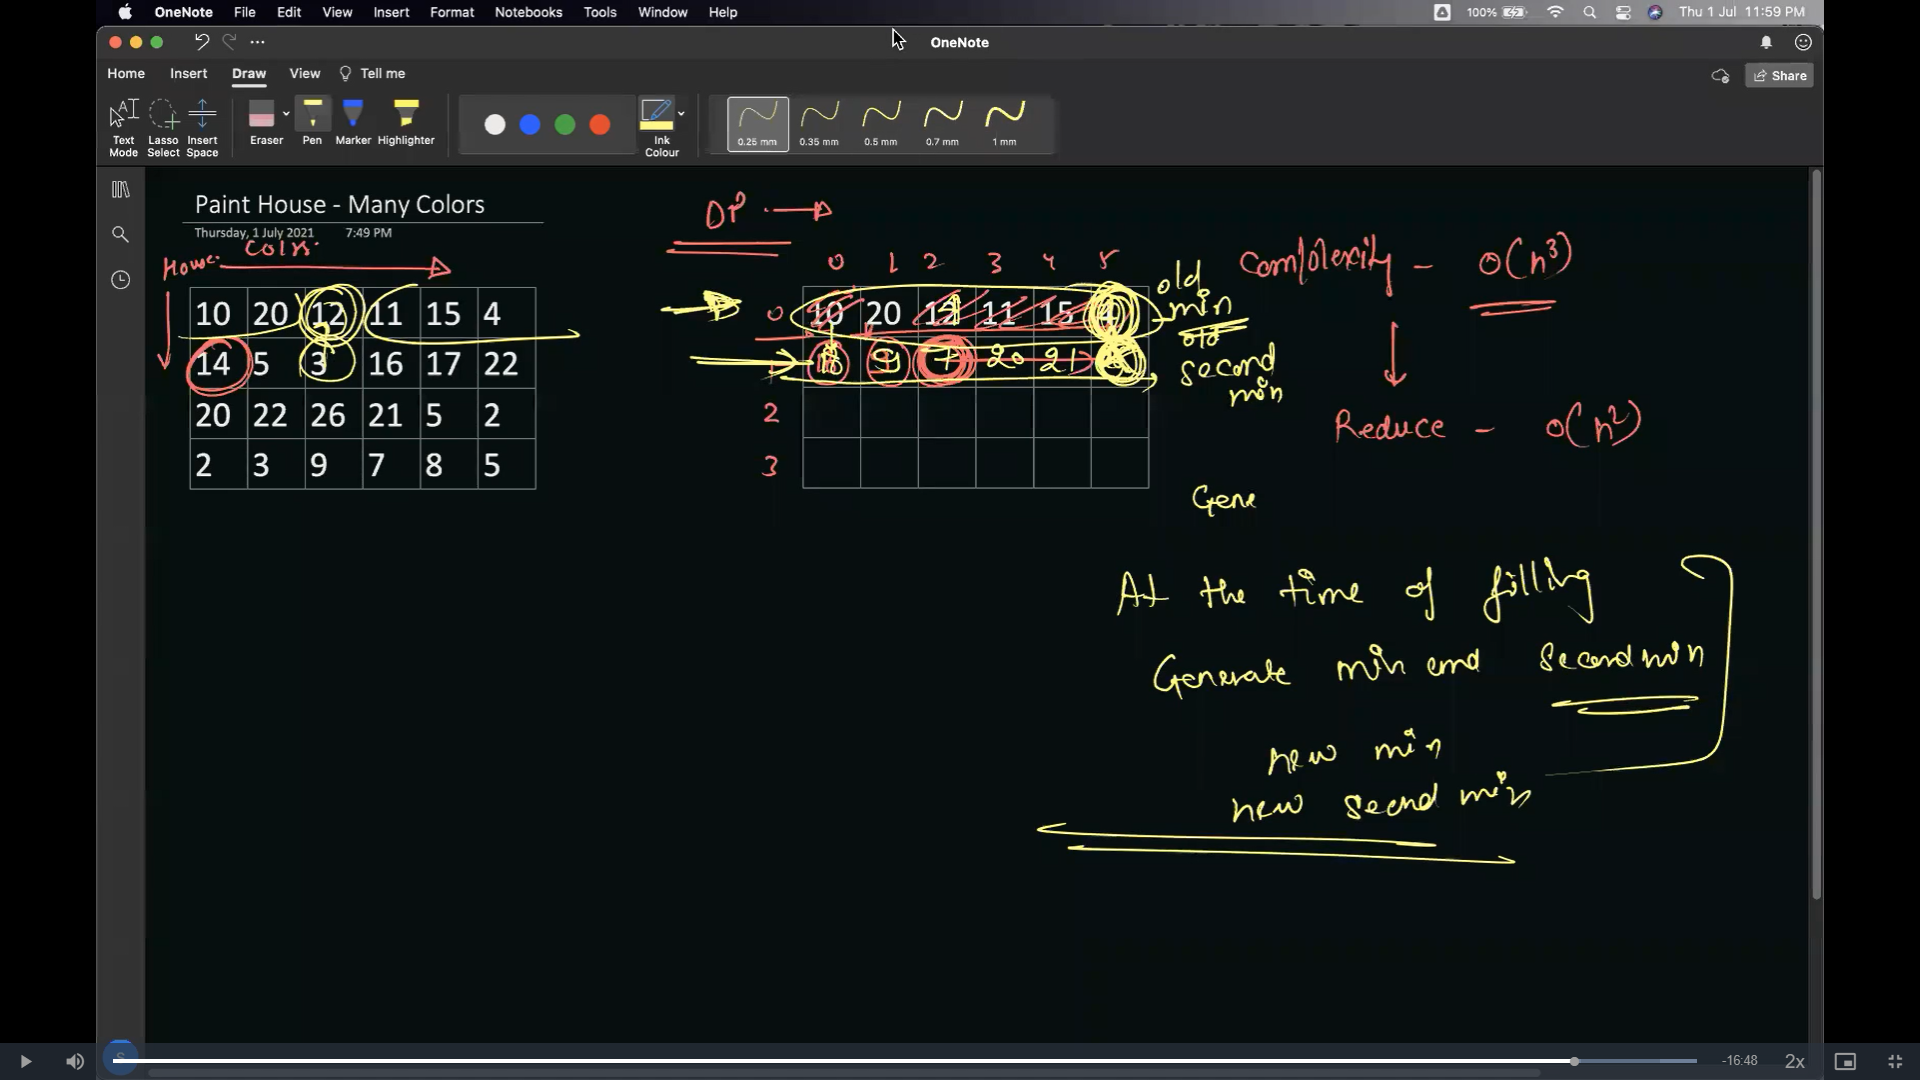 OneNote File Edit View Insert Format Notebooks Tools Window Help 100% Thu 1 Jul 11:59 PM
OneNote
Home Insert Draw View Tell me Share
Text Mode Lasso Select Insert Space Eraser Pen Marker Highlighter Ink Colour 0.25 mm 0.35 mm 0.5 mm 0.7 mm 1 mm
Paint House - Many Colors
Thursday, 1 July 2021 7:49 PM
House
10 20 12 11 15 4
14 5 3 16 17 22
20 22 26 21 5 2
2 3 9 7 8 5
DP
0 1 2 3 4 5
0 10 20 12 11 15 4
9 7 20 21
2
3
old
min
old
second
min
Complexity - O(n³)
Reduce - O(n²)
Gene
At the time of filling
Generate min and second min
new min
new second min
-16:48 2x